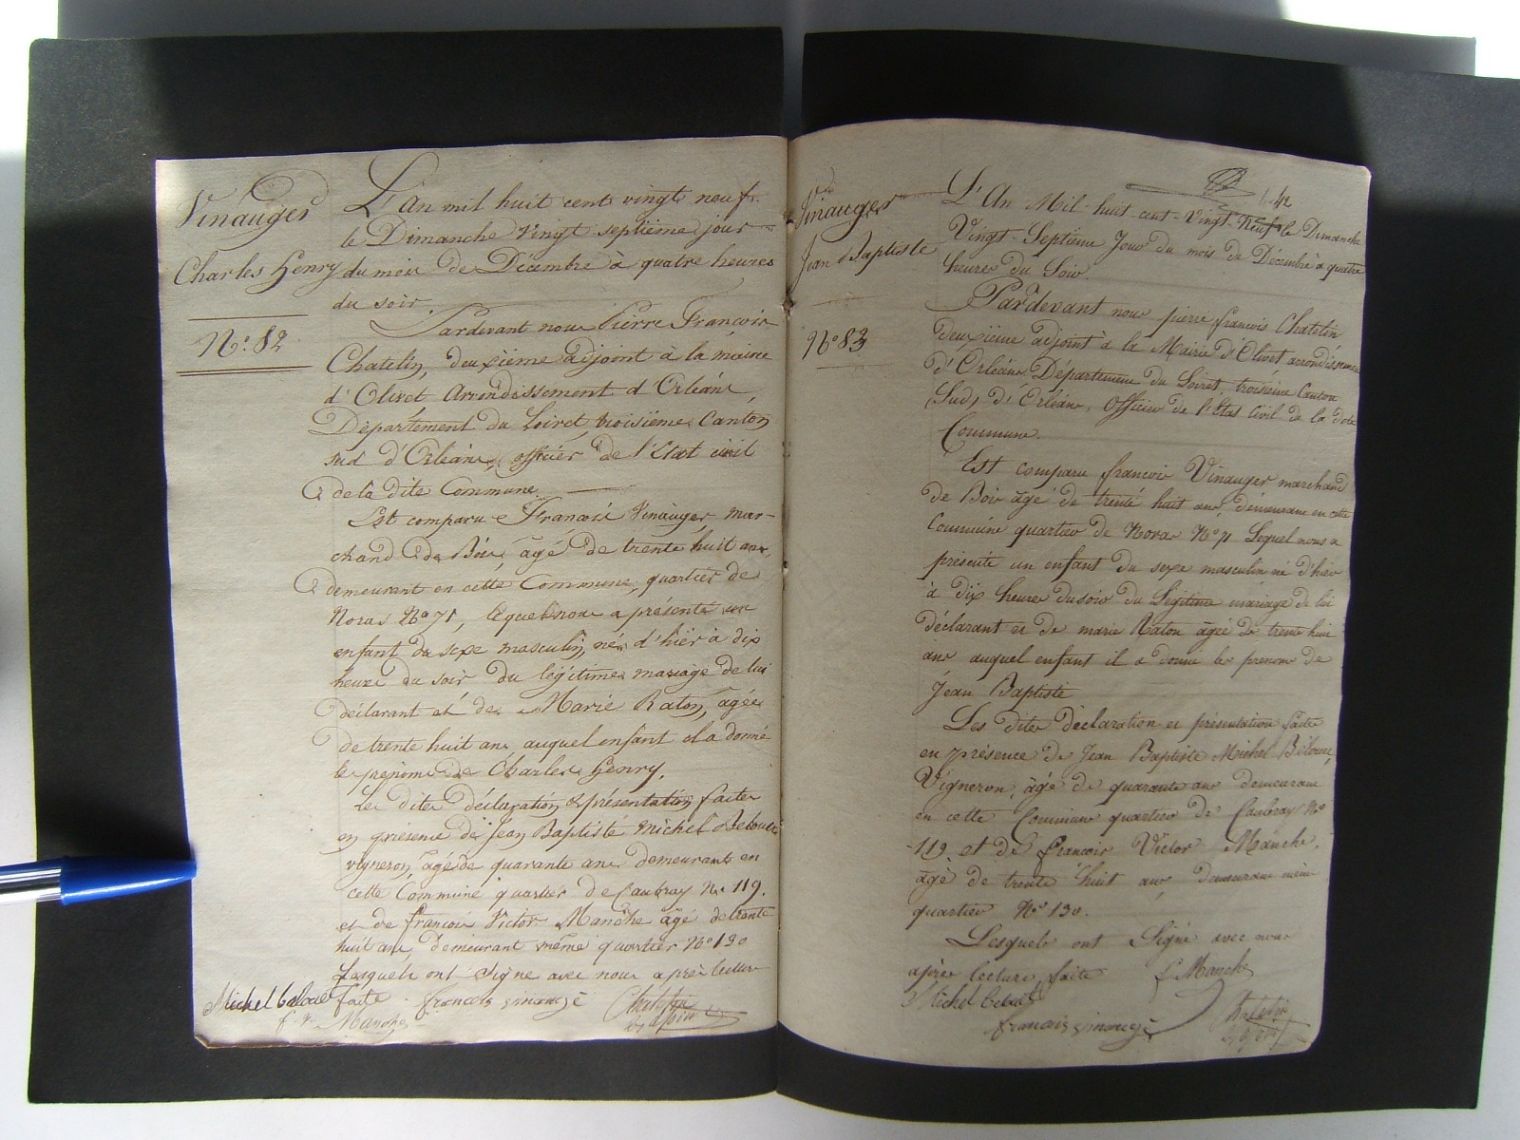 Vinauger
Charles Henry
N° 82
L'An mil huit cents vingt neuf
le Dimanche Vingt septième jour
du mois de Décembre à quatre heures
du soir.
Pardevant nous Pierre François
Chatelin, deuxième adjoint à la mairie
d'Olivet Arrondissement d'Orléans,
Département du Loiret, troisième Canton
sud d'Orléans, officier de l'Etat civil
de la dite Commune
Est comparu François Vinauger, mar-
chand de Bois, âgé de trente huit ans,
demeurant en cette Commune, quartier de
Noras N° 71, lequel nous a présenté un
enfant du sexe masculin, né d'hier à dix
heures du soir du légitime mariage de lui
déclarant et de Marie Raton, âgée
de trente huit ans auquel enfant il a donné
les prénoms de Charles Henry.
les dites déclaration & présentation faites
en présence de Jean Baptiste Michel Beloué
vigneron, âgé de quarante ans demeurant en
cette Commune quartier de Caubray N° 119.
et de françois Victor Manche âgé de trente
huit ans, demeurant même quartier N° 130
Lesquels ont Signé avec nous après lecture
faite
Michel beloué françois vinaugé Chatelin
f. v. Manche adjoint
42
Vinauger
Jean Baptiste
N° 83
L'An Mil-huit-cent-Vingt-Neuf le Dimanche
Vingt-Septième Jour du mois de Décembre à quatre
heures du Soir
Pardevant nous pierre françois Chatelin
Deuxième adjoint à la Mairie d'Olivet arrondissement
d'Orléans Département du Loiret troisième Canton
(Sud) d'Orléans, Officier de l'Etat Civil de la dite
Commune.
Est comparu françois Vinauger marchand
de Bois âgé de trente huit ans, demeurant en cette
Commune quartier de Noras N° 71 Lequel nous a
présenté un enfant du sexe masculin né d'hier
à dix heures du soir du Légitime mariage de lui
déclarant et de marie Raton âgée de trente huit
ans auquel enfant il a donné les prénoms de
Jean Baptiste
Les dites déclaration et présentation faites
en présence de Jean Baptiste Michel Béloué,
Vigneron, âgé de quarante ans demeurant
en cette Commune quartier de Caubray N°
119. et de françois Victor Manche,
âgé de trente huit ans demeurant même
quartier N° 130.
Lesquels ont Signé avec nous
après lecture faite f. Manche
Michel beloué
françois vinaugé Chatelin
adjoint